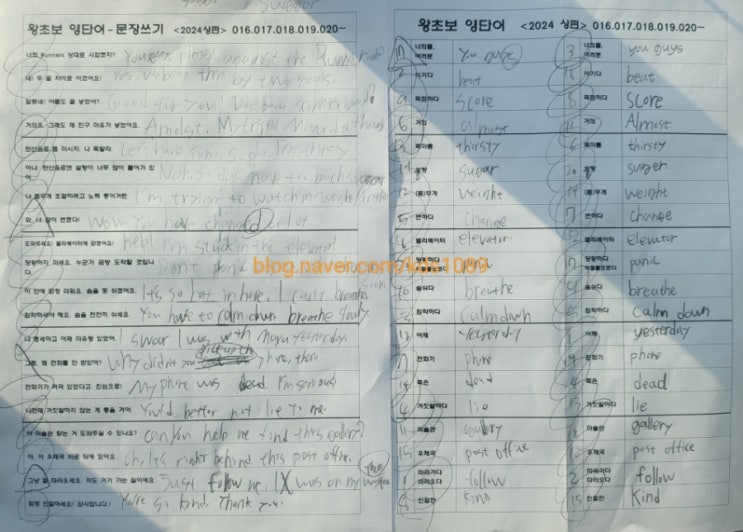 왕초보 영단어 - 문장쓰기 <2024상편> 016.017.018.019.020~
너희 Runners 상대로 시합했지? You player against the Runners
네! 두 골 차이로 이겼어요! Yes, we beat them by two goals.
잘했네! 아들도 골 넣었어? Good for you! Did you score a goal?
거의요. 그래도 제 친구 마유가 넣었어요. Amolst. My friend Mayu did though.
탄산음료 좀 마시자. 나 목말라. Let's have some soda. I'm thirsty
아니. 탄산음료엔 설탕이 너무 많이 들어가 있어. Nah. Sodas have too much
나 몸무게 조절하려고 노력 중이거든. I'm trying to watch my weight
와, 너 많이 변했다! Wow. You have changed a lot.
도와주세요! 엘리베이터에 갇혔어요! help! I'm stuck in the elevator!
당황하지 마세요. 누군가 금방 도착할 겁니다. Don't panic
이 안에 엄청 더워요. 숨을 못 쉬겠어요. It's so hot in here. I can't breathe.
침착하셔야 해요. 숨을 천천히 쉬세요. You have to calm down. breathe slowly
나 맹세하고 어제 마유랑 있었어. I swear I was with mayu yesterday.
그럼, 왜 전화를 안 받았어? Why didn't you pick up the phone, then
전화기가 꺼져 있었다고. 진심으로! My phone was dead. I'm serious.
나한테 거짓말하지 않는 게 좋을 거야. You'd better not lie to me.
이 미술관 찾는 거 도와주실 수 있나요? can you help me find this gallery?
아, 이 우체국 바로 뒤에 있어요. oh, It's right behind this post office.
그냥 절 따라오세요. 저도 거기 가는 길이에요. Just follow me. I was on my way
엄청 친절하세요! 감사합니다! You're so kind. Thank you!
blog.naver.com/kdh1089
왕초보 영단어 <2024 상편> 016.017.018.019.020~
너희들, 여러분 You guys 3 너희들, 여러분 you guys
이기다 beat 이기다 beat
9 득점하다 score 8 득점하다 score
6 거의 almost 거의 Almost
목마른 thirsty 목마른 thirsty
설탕 sugar 20 설탕 suger
12 (몸)무게 weight (몸)무게 weight
5 변하다 change 7 변하다 change
엘리베이터 elevator 12 엘리베이터 elevator
당황하다 어쩔줄모르다 당황하다 어쩔줄모르다 panic
숨쉬다 breathe 숨쉬다 breathe
침착하다 Calm down 침착하다 calm down
어제 yesterday 어제 yesterday
전화기 phone 전화기 phone
죽은 dead 죽은 dead
거짓말하다 lie 거짓말하다 lie
11 미술관 gallery 18 미술관 gallery
우체국 post office 우체국 post office
따라가다 따라오다 follow 2 따라가다 따라오다 follow
친절한 kind 15 친절한 kind